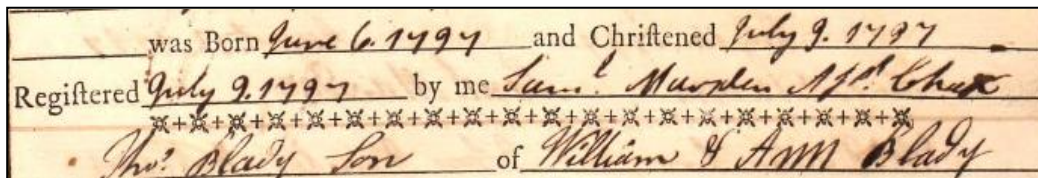 was Born June 6. 1797 and Chriſtened July 9. 1797
Regiſtered July 9. 1797 by me Sam.l Marsden
Tho.s Blady Son of William & Ann Blady